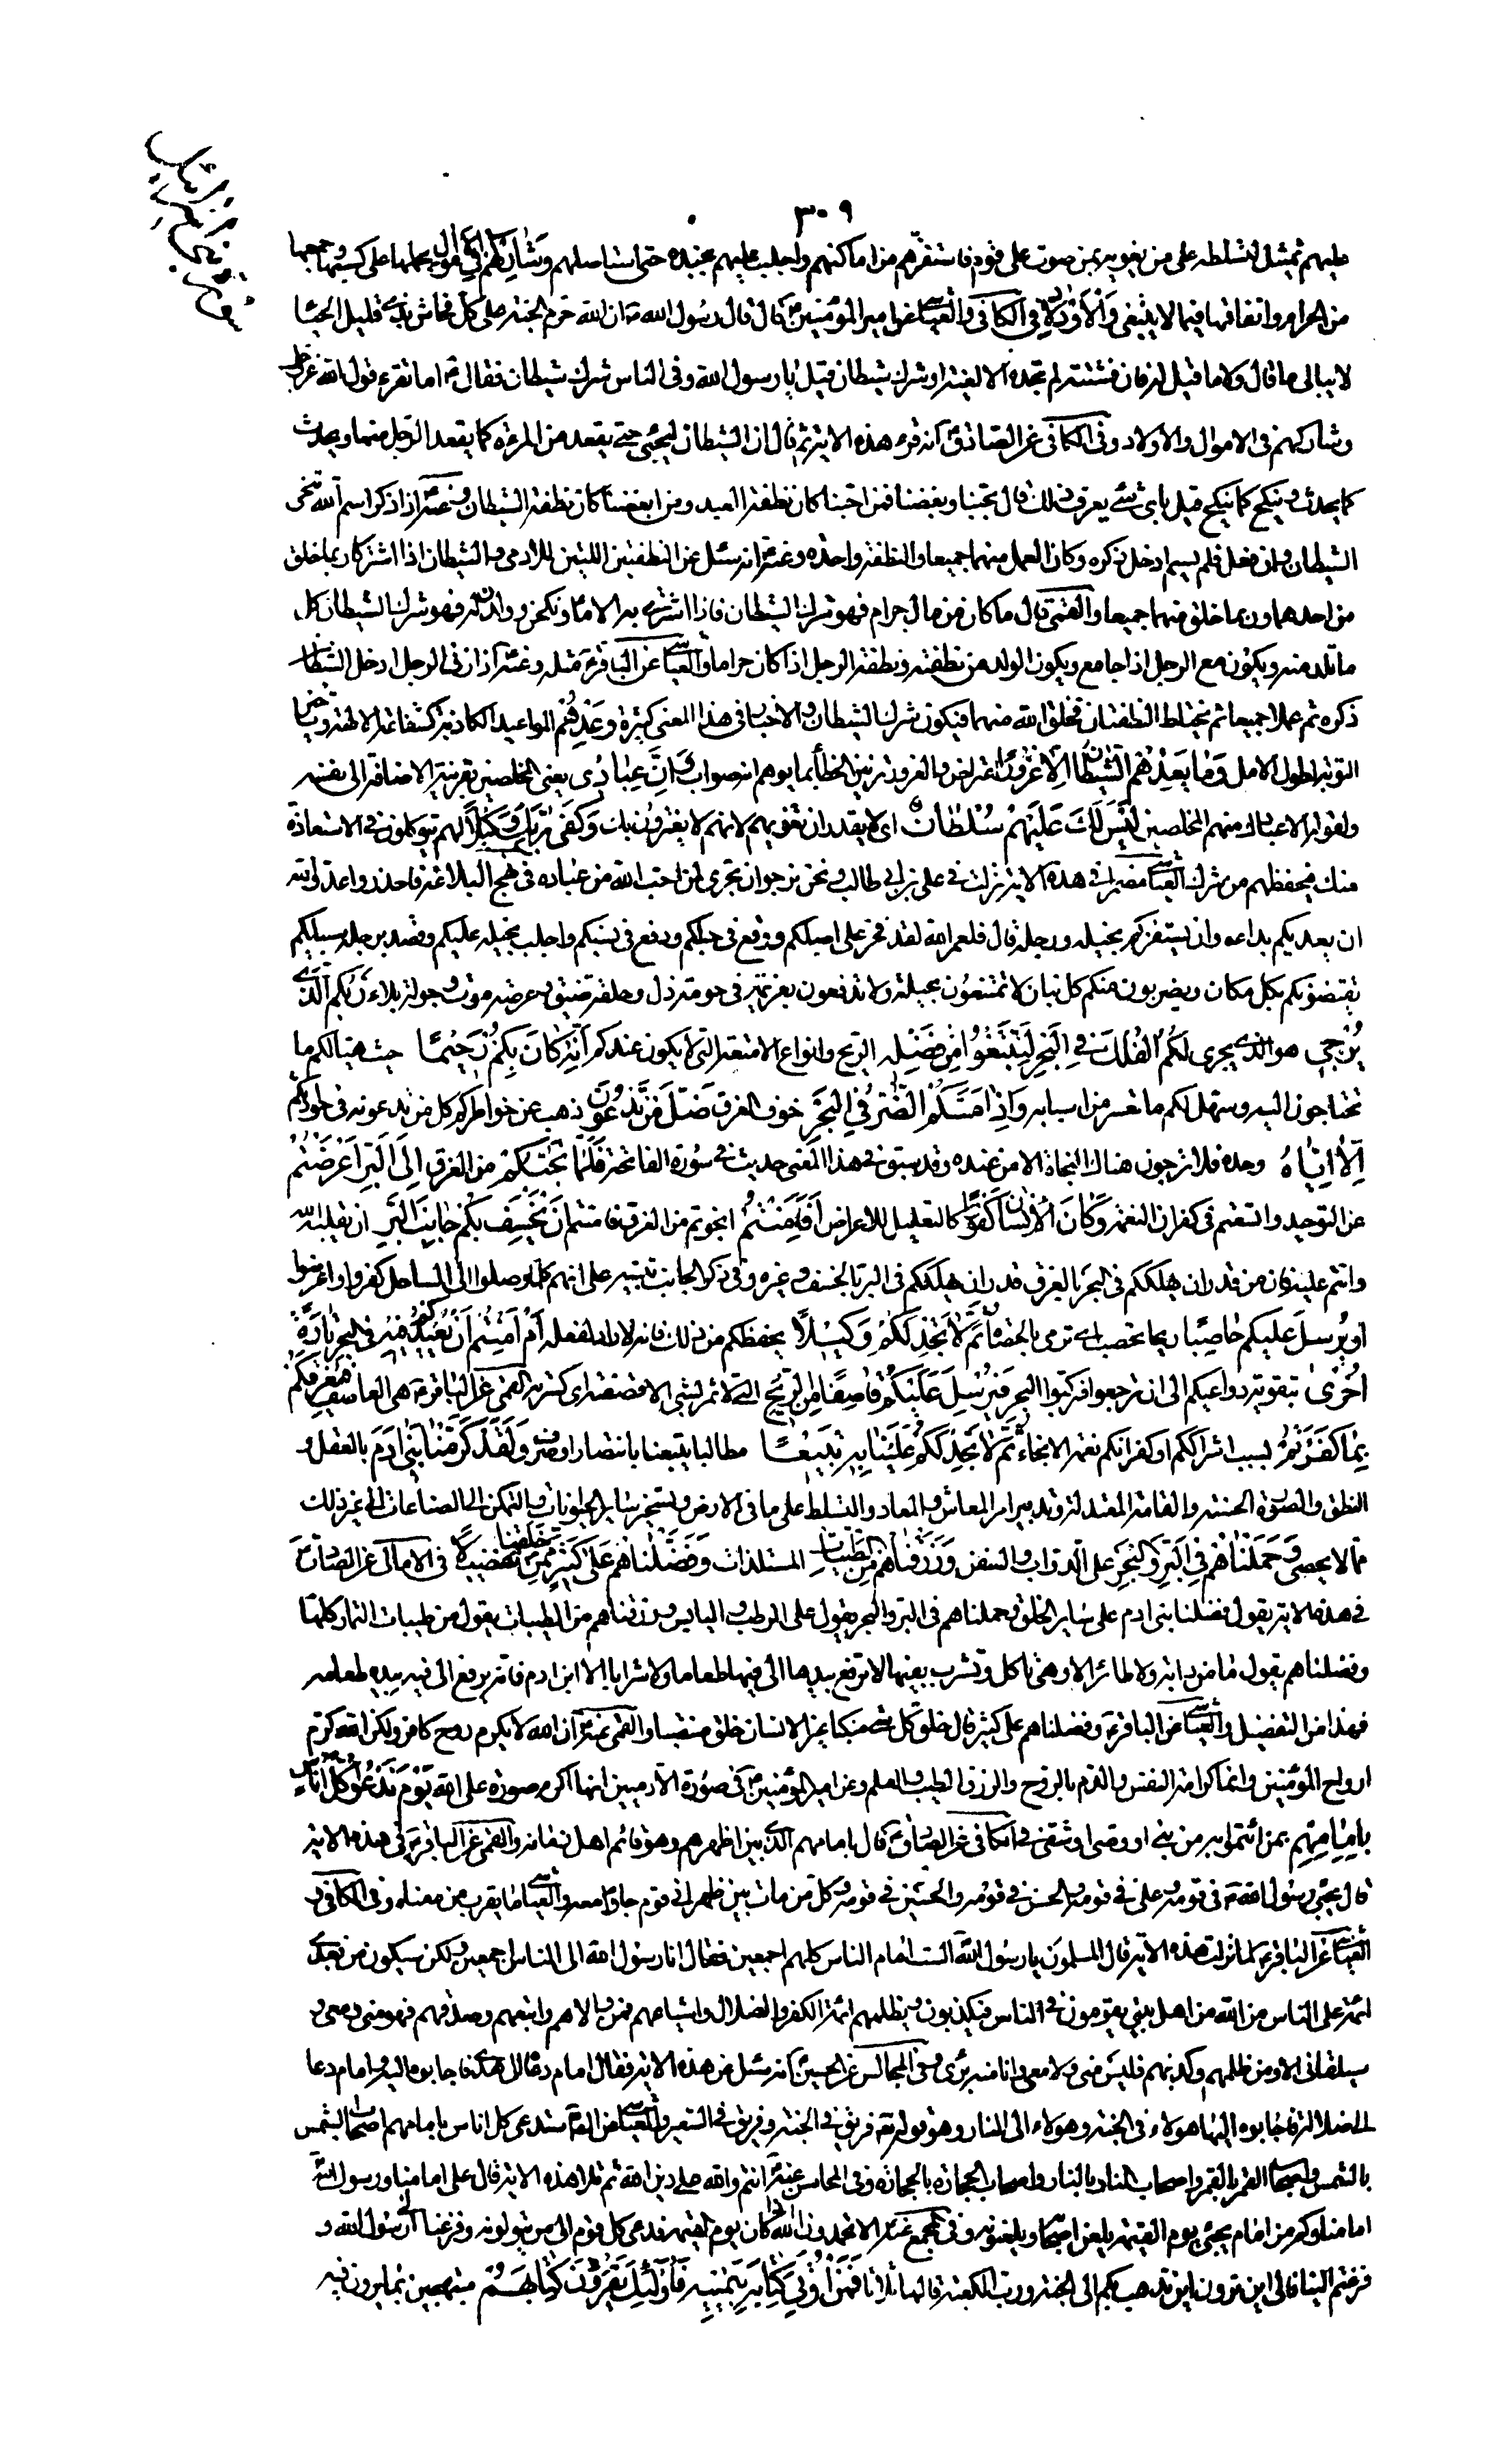 ٣٠٩
سورة بنى اسرائيل
عليهم تمثيل لتسلطه على من يغويه بمن صوت على قوم فاستفزهم من اماكنهم واجلب عليهم بجنده حتى استاصلهم وَشارِكْهُمْ فِي الْأَمْوالِ بحملها على كسبها وجمعها
من الحرام وانفاقها فيما لا ينبغى وَالْأَوْلادِ فى الكافى والعياشى عن امير المؤمنين ع قال قال رسول الله ص ان الله حرم الجنة على كل فحاش بذى قليل الحياء
لا يبالى ما قال ولا ما قيل له فان فتشته لم تجده الا لغية او شرك شيطان فقيل يا رسول الله وفى الناس شرك شيطان فقال ص اما تقرء قول الله عز وجل
وشاركهم فى الاموال والاولاد وفى الكافى عن الصادق ع انه قرء هذه الاية ثم قال ان الشيطان ليجيئ حتى يقعد من المرءة كما يقعد الرجل منها ويحدث
كما يحدث وينكح كما ينكح قيل باى شئ يعرف ذلك قال بحبنا وبغضنا فمن احبنا كان نطفة العبد ومن ابغضنا كان نطفة الشيطان وعنه ع اذا ذكر اسم الله تنحى
الشيطان وان فعل فلم يسم ادخل ذكره وكان العمل منهما جميعا والنطفة واحدة وعنه ع انه سئل عن النطفتين اللتين للادمى والشيطان اذا اشتركا ربما خلق
من احدهما وربما خلق منهما جميعا والقمى قال ما كان من مال حرام فهو شرك الشيطان فاذا اشترى به الاماء ونكحهن وولد له فهو شرك الشيطان كل
ما تلد منه ويكون مع الرجل اذا جامع ويكون الولد من نطفته ونطفة الرجل اذا كان حراما والعياشى عن الباقر ع مثله وعنه ع اذا زنى الرجل ادخل الشيطان
ذكره ثم عملا جميعا ثم تختلط النطفتان فيخلق الله منهما فيكون شرك الشيطان والاخبار فى هذا المعنى كثيرة وَعِدْهُمْ المواعيد الكاذبة كشفاعة الالهة وتاخير
التوبة لطول الامل وَما يَعِدُهُمُ الشَّيْطانُ إِلَّا غُرُوراً اعتراض والغرور تزيين الخطأ بما يوهم انه صواب إِنَّ عِبادِي يعنى المخلصين بقرينة الاضافة الى نفسه
ولقوله الا عبادك منهم المخلصين لَيْسَ لَكَ عَلَيْهِمْ سُلْطانٌ اى لا يقدر ان تغويهم لانهم لا يغترون بك وَكَفى بِرَبِّكَ وَكِيلًا لهم يتوكلون فى الاستعاذة
منك فيحفظهم من شرك العياشى مضمرا فى هذه الاية نزلت فى على بن ابى طالب ونحن نرجو ان تجرى لمن احب الله من عباده فى نهج البلاغة فاحذروا عدو الله
ان يعديكم بدائه وان يستفزكم بخيله ورجله قال فلعمر الله لقد فخر على اصلكم ووقع فى حسبكم ودفع فى نسبكم واجلب بخيله عليكم وقصد برجله سبيلكم
يقتنصونكم بكل مكان ويضربون منكم كل بنان لا تمتنعون بحيلة ولا تدفعون بعزيمة فى حومة ذل وحلقة ضيق وعرصة موت وجولة بلاء رَبُّكُمُ الَّذِي
يُزْجِي هو الذى يجرى لَكُمُ الْفُلْكَ فِي الْبَحْرِ لِتَبْتَغُوا مِنْ فَضْلِهِ الريح وانواع الامتعة التى لا يكون عندكم إِنَّهُ كانَ بِكُمْ رَحِيماً حيث هيأ لكم ما
تحتاجون اليه وسهل لكم ما تعسر من اسبابه وَإِذا مَسَّكُمُ الضُّرُّ فِي الْبَحْرِ خوف الغرق ضَلَّ مَنْ تَدْعُونَ ذهب عن خواطركم كل من تدعونه فى حوادثكم
إِلَّا إِيَّاهُ وحده فلا ترجون هناك النجاة الا من عنده وقد سبق فى هذا المعنى حديث فى سورة الفاتحة فَلَمَّا نَجَّاكُمْ من الغرق إِلَى الْبَرِّ أَعْرَضْتُمْ
عن التوحيد واتسعتم فى كفران النعمة وَكانَ الْإِنْسانُ كَفُوراً كالتعليل للاعراض أَفَأَمِنْتُمْ انجوتم من الغرق فامنتم أَنْ يَخْسِفَ بِكُمْ جانِبَ الْبَرِّ ان يقلبه الله
وانتم عليه فان من قدر ان يهلككم فى البحر بالغرق قدر ان يهلككم فى البر بالخسف وغيره وفى ذكر الجانب تنبيه على انهم كما وصلوا الى الساحل كفروا واعرضوا
أَوْ يُرْسِلَ عَلَيْكُمْ حاصِباً ريحا تحصب اى ترمى بالحصباء ثُمَّ لا تَجِدُوا لَكُمْ وَكِيلًا يحفظكم من ذلك فانه لا راد لفعله أَمْ أَمِنْتُمْ أَنْ يُعِيدَكُمْ فِيهِ فى البحر تارَةً
أُخْرى بتقوية دواعيكم الى ان ترجعوا فتركبوا البحر فَيُرْسِلَ عَلَيْكُمْ قاصِفاً مِنَ الرِّيحِ التى لا تمر بشئ الا قصفته اى كسرته القمى عن الباقر ع هى العاصف فَيُغْرِقَكُمْ
بِما كَفَرْتُمْ بسبب اشراككم او كفرانكم نعمة الانجاء ثُمَّ لا تَجِدُوا لَكُمْ عَلَيْنا بِهِ تَبِيعاً مطالبا يتبعنا بانتصار او صرف وَلَقَدْ كَرَّمْنا بَنِي آدَمَ بالعقل و
النطق والصورة الحسنة والقامة المعتدلة وتدبير امر المعاش والمعاد والتسلط على ما فى الارض وتسخير سائر الحيوانات والتمكن الى الصناعات الى غير ذلك
مما لا يحصى وَحَمَلْناهُمْ فِي الْبَرِّ وَالْبَحْرِ على الدواب والسفن وَرَزَقْناهُمْ مِنَ الطَّيِّباتِ المستلذات وَفَضَّلْناهُمْ عَلى كَثِيرٍ مِمَّنْ خَلَقْنا تَفْضِيلًا فى الامالى عن الصادق ع
فى هذه الاية يقول فضلنا بنى ادم على سائر الخلق وحملناهم فى البر والبحر يقول على الرطب واليابس ورزقناهم من الطيبات يقول من طيبات الثمار كلها
وفضلناهم يقول ما من دابة ولا طائر الا وهى تاكل وتشرب بفيها لا ترفع بيدها الى فيها طعاما ولا شرابا الا ابن ادم فانه يرفع الى فيه بيده طعامه
فهذا من التفضيل والعياشى عن الباقر ع وفضلناهم على كثير قال خلق كل شئ منكبا غير الانسان خلق منتصبا والقمى عنه ع ان الله لا يكرم روح كافر ولكن الله كرم
ارواح المؤمنين وانما كرامة النفس والدم بالروح والرزق الطيب والعلم وعن امير المؤمنين ع فى صورة الادميين انها اكرم صورة على الله يَوْمَ نَدْعُوا كُلَّ أُناسٍ
بِإِمامِهِمْ بمن ائتموا به من نبى او وصى او شقى فى الكافى عن الصادق ع قال بامامهم الذى بين اظهرهم وهو قائم اهل زمانه والقمى عن الباقر ع فى هذه الاية
قال يجئ رسول الله ص فى قومه وعلى فى قومه والحسن فى قومه والحسين فى قومه وكل من مات بين ظهرانى قوم جاؤا معه والعياشى ما يقرب من معناه وفى الكافى و
العياشى عن الباقر ع لما نزلت هذه الاية قال المسلمون يا رسول الله الست امام الناس كلهم اجمعين فقال انا رسول الله الى الناس اجمعين ولكن سيكون من بعدى
ائمة على الناس من الله من اهل بيتى يقومون فى الناس فيكذبون ويظلمهم ائمة الكفر والضلال واشياعهم فمن والاهم واتبعهم وصدقهم فهو منى ومعى و
سيلقانى الا ومن ظلمهم وكذبهم فليس منى ولا معى وانا منه برئ وفى المجالس عن الحسين ع انه سئل عن هذه الاية فقال امام دعا الى هدى فاجابوه اليه وامام دعا
الى ضلالة فاجابوه اليها هولاء فى الجنة وهولاء الى النار وهو قوله تع فريق فى الجنة وفريق فى السعير والعياشى عن الصادق ع سيدعى كل اناس بامامهم اصحاب الشمس
بالشمس واصحاب القمر بالقمر واصحاب النار بالنار واصحاب الحجارة بالحجارة وفى المحاسن عنه ع انتم والله على دين الله ثم تلا هذه الاية ثم قال على امامنا ورسول الله ص
امامنا وكم من امام يجئ يوم القيمة يلعن اصحابه ويلعنونه وفى المجمع عنه ع الا تحمدون الله اذا كان يوم القيمة فدعى كل قوم الى من يتولونه وفزعنا الى رسول الله و
فزعتم الينا فالى اين ترون اين تذهب بكم الى الجنة ورب الكعبة قالها ثلاثا فَمَنْ أُوتِيَ كِتابَهُ بِيَمِينِهِ فَأُولئِكَ يَقْرَؤُنَ كِتابَهُمْ مبتهجين بما يرون فيه